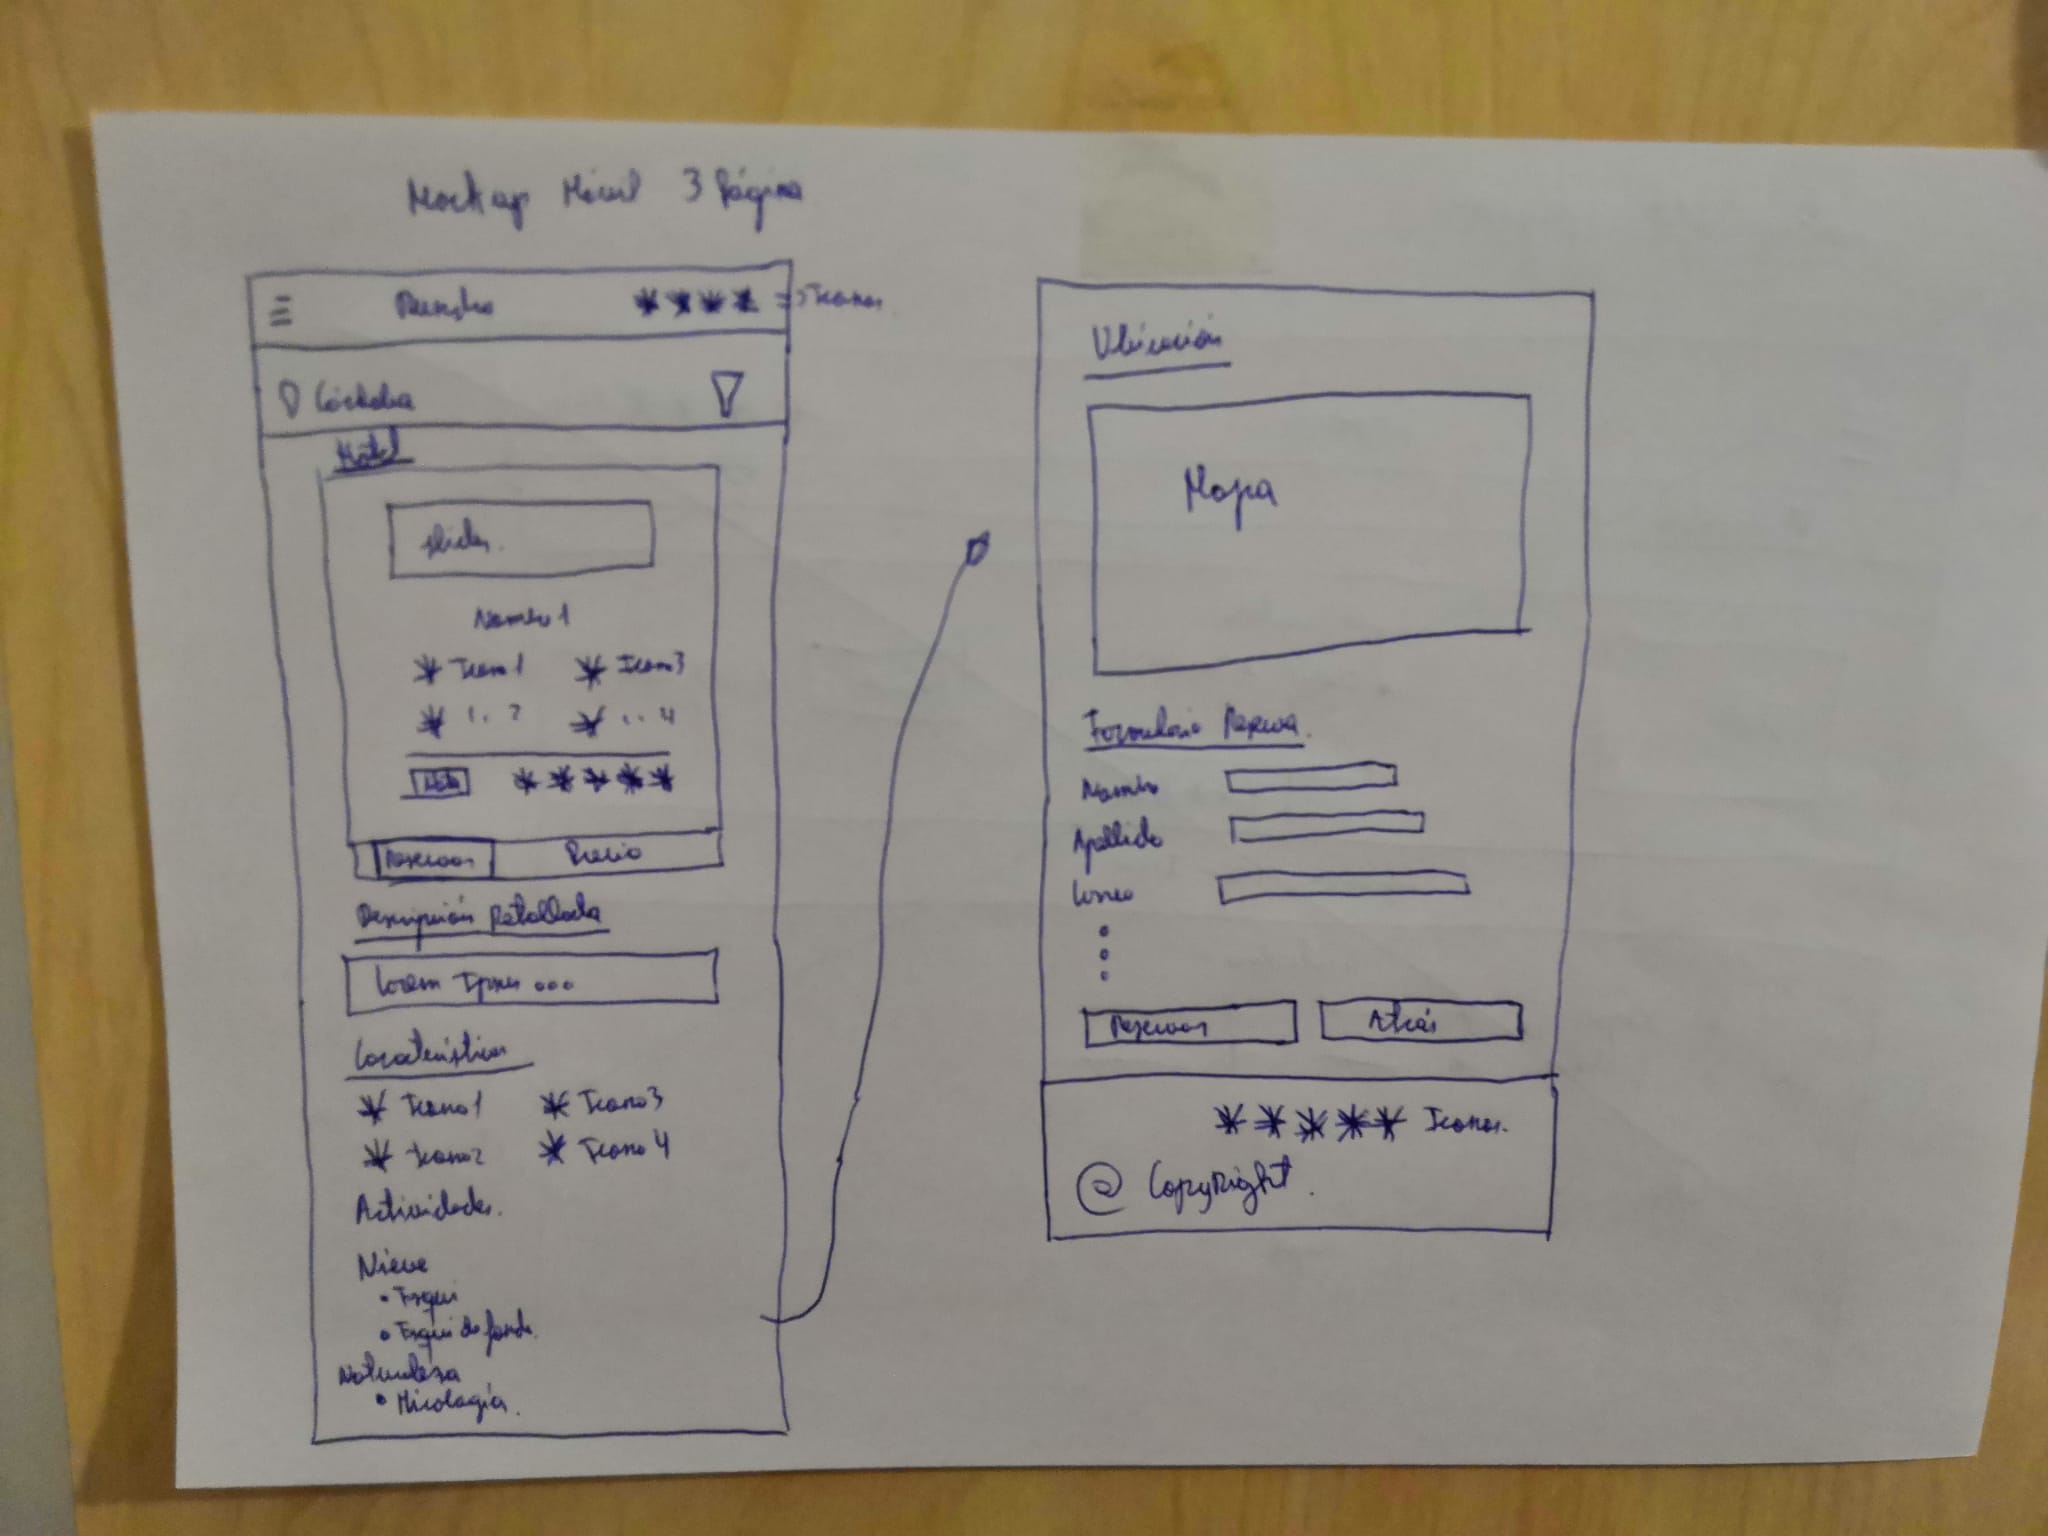 Mockup Móvil 3 Página
Nombre
=> Iconos
Córdoba
Hotel
slider.
Nombre 1
Icono 1 Icono 3
".. 2 ".. 4
Reservar Precio
Descripción Detallada
Lorem Ipsum ...
Características
Icono 1 Icono 3
Icono 2 Icono 4
Actividades.
Nieve
• Esqui
• Esqui de fondo.
Naturaleza
• Micología.
Ubicación
Mapa
Formulario Reserva.
Nombre
Apellido
Correo
Reservar Atrás
Iconos.
@ CopyRight.